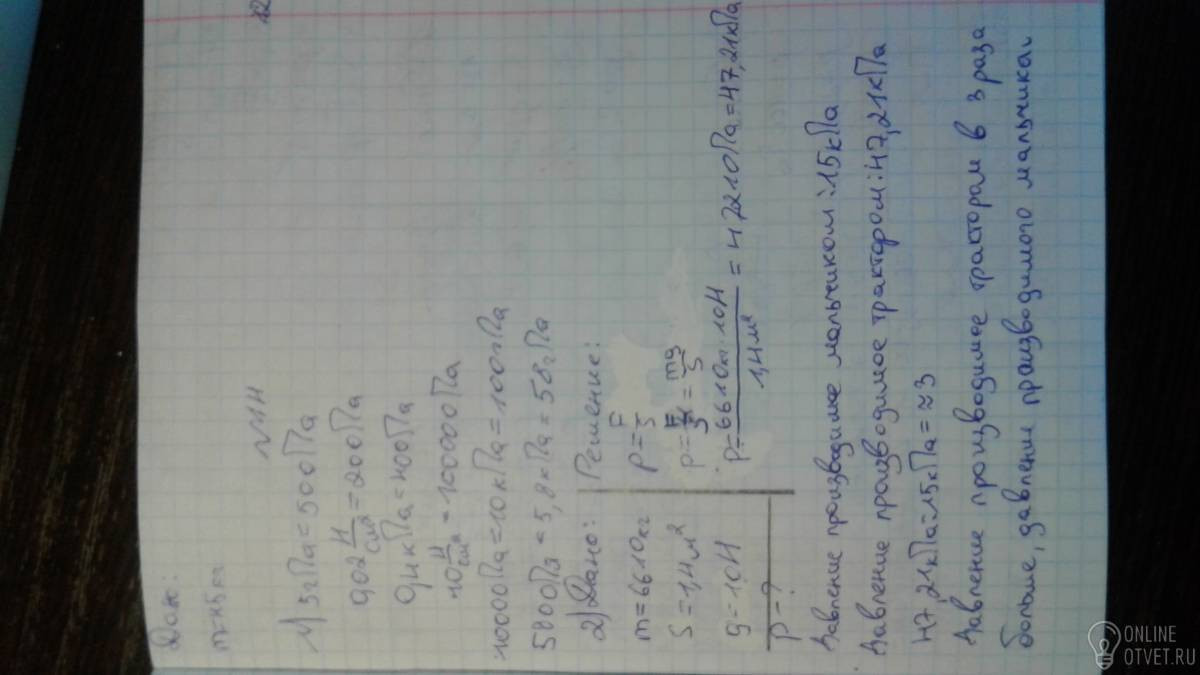 12
Дано:
m=45кг
№14
1) 5гПа=500Па
0,02 Н/см² = 200Па
0,4кПа=400Па
10 Н/см² = 100000Па
10000Па=10кПа=100гПа
5800Па = 5,8кПа=58гПа
2) Дано: Решение:
m=6610кг p=F/S
S=1,4м² p=F/S=mg/S
g=10Н p=6610кг·10Н/1,4м²=47210Па=47,21кПа
p-?
Давление производимое мальчиком:15кПа
Давление производимое трактором:47,21кПа
47,21кПа:15кПа=≈3
Давление производимое трактором в 3 раза
больше, давления производимого мальчика.
ONLINE
OTVET.RU